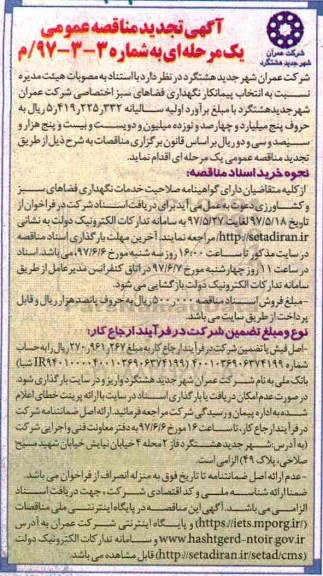 شرکت عمران
شهر جدید هشتگرد
آگهی تجدید مناقصه عمومی
یک مرحله ای به شماره ۳-۳-۹۷/م
شرکت عمران شهر جدید هشتگرد در نظر دارد با استناد به مصوبات هیئت مدیره
نسبت به انتخاب پیمانکار نگهداری فضاهای سبز اختصاصی شرکت عمران
شهر جدید هشتگرد با مبلغ برآورد اولیه سالیانه ۵٫۴۱۹٫۲۲۵٫۳۳۲ ریال به
حروف پنج میلیارد و چهارصد و نوزده میلیون و دویست و بیست و پنج هزار و
سیصد و سی و دو ریال بر اساس قانون برگزاری مناقصات به شرح ذیل از طریق
تجدید مناقصه عمومی یک مرحله ای اقدام نماید.
نحوه خرید اسناد مناقصه:
از کلیه متقاضیان دارای گواهینامه صلاحیت خدمات نگهداری فضاهای سبز
و کشاورزی دعوت به عمل می آید برای دریافت اسناد شرکت در فراخوان از
تاریخ ۹۷/۵/۱۸ لغایت ۹۷/۵/۲۷ به سامانه تدارکات الکترونیک دولت به نشانی
http://setadiran.ir/ مراجعه نمایند. آخرین مهلت بارگذاری اسناد مناقصه
در سایت مذکور تا ساعت ۱۶:۰۰ روز سه شنبه مورخ ۹۷/۶/۶ می باشد. اسناد
در ساعت ۱۱ روز چهارشنبه مورخ ۹۷/۶/۷ در اتاق کنفرانس مدیرعامل از طریق
سامانه تدارکات الکترونیک دولت بازگشایی می شود.
-مبلغ فروش اسناد مناقصه ۵۰۰٫۰۰۰ ریال به حروف پانصد هزار ریال و قابل
پرداخت از طریق سایت می باشد.
نوع و مبلغ تضمین شرکت در فرآیند ارجاع کار:
-اصل فیش یا تضمین شرکت در فرآیند ارجاع کار به مبلغ ۲۷۰٫۹۶۱٫۲۶۷ ریال را به حساب
بانک ملی به نام شرکت عمران شهر جدید هشتگرد واریز و در سایت بارگذاری شود.
در صورت عدم امکان دریافت یا بارگذاری اسناد در سایت با ارائه پرینت خطای اعلام
شده به اداره پیمان و رسیدگی شرکت مراجعه فرمائید. ارائه اصل ضمانتنامه شرکت
در فرآیند ارجاع کار، تا ساعت ۱۶ مورخ ۹۷/۶/۶ به دفتر معاونت فنی و اجرایی شرکت
(به آدرس: شهر جدید هشتگرد فاز ۲ محله ۴ خیابان نیایش خیابان شهید مسیح
صلاحی، پلاک ۴۹) الزامی است.
-عدم ارائه اصل ضمانتنامه تا تاریخ فوق به منزله انصراف از فراخوان می باشد.
ضمنا ارائه شناسه ملی و کد اقتصادی شرکت، جهت دریافت اسناد
الزامی می باشد. آگهی این مناقصه در پایگاه اینترنتی ملی مناقصات
(https://iets.mporg.ir/) و پایگاه اینترنتی شرکت عمران به آدرس
www.hashtgerd-ntoir.gov.ir و سامانه تدارکات الکترونیک دولت
(http://setadiran.ir/setad/cms) قابل مشاهده می باشد.